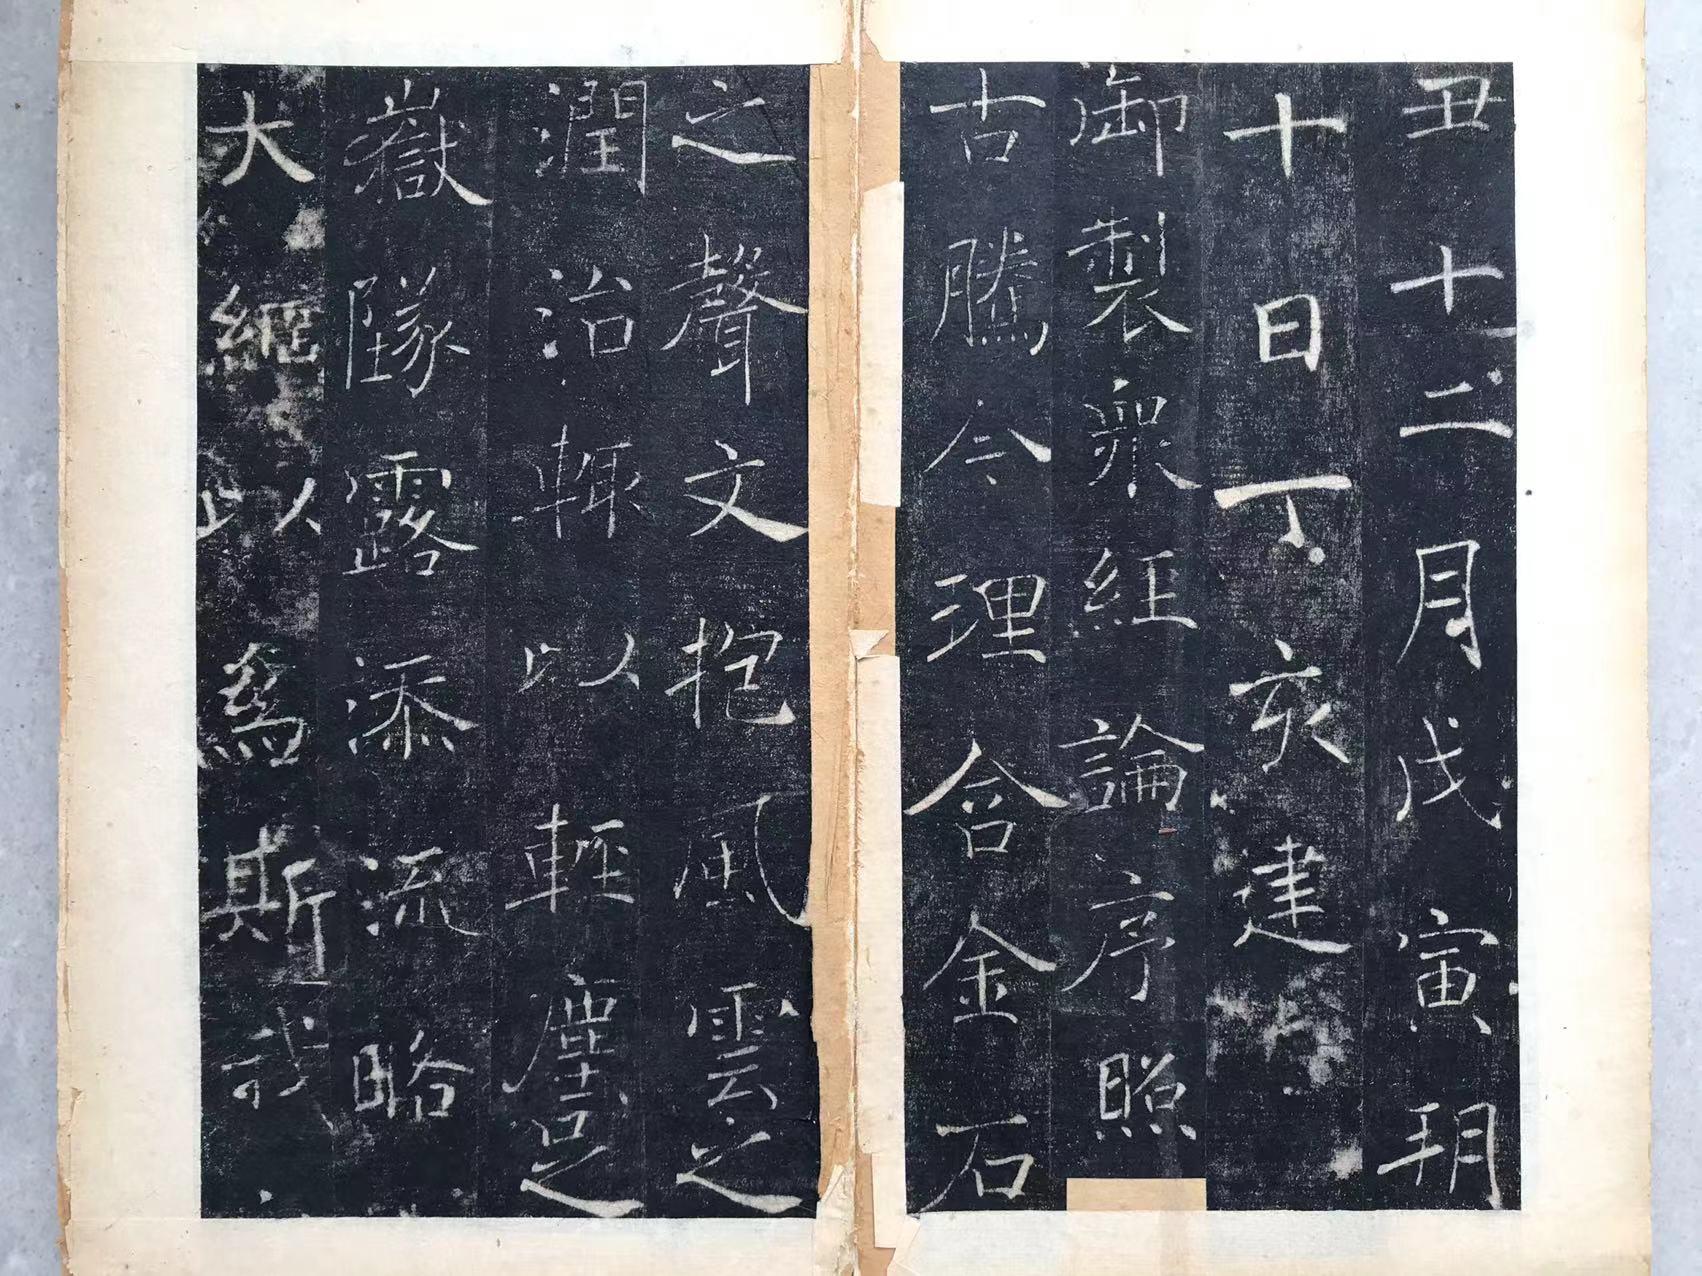 丑十二月戊寅朔
十日丁亥建
御製衆經論序照
古騰今理含金石
之聲文抱風雲之
潤治輒以輕塵足
嶽墜露添流略
大綱以為斯記